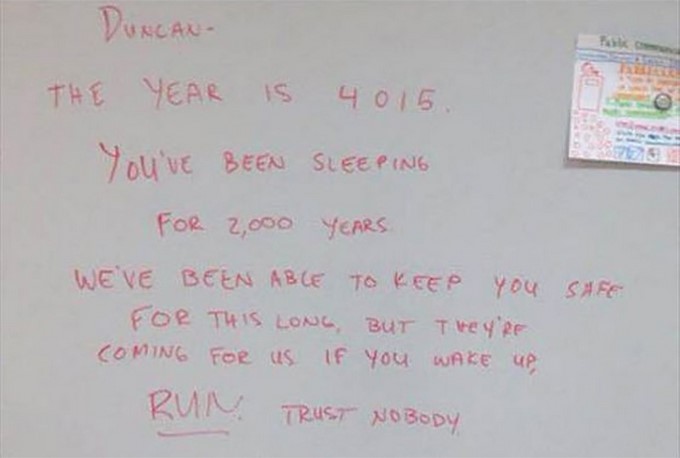 DUNCAN-
THE YEAR IS 4015.
YOU'VE BEEN SLEEPING
FOR 2,000 YEARS.
WE'VE BEEN ABLE TO KEEP YOU SAFE
FOR THIS LONG, BUT THEY'RE
COMING FOR US IF YOU WAKE UP,
RUN. TRUST NOBODY.
Public